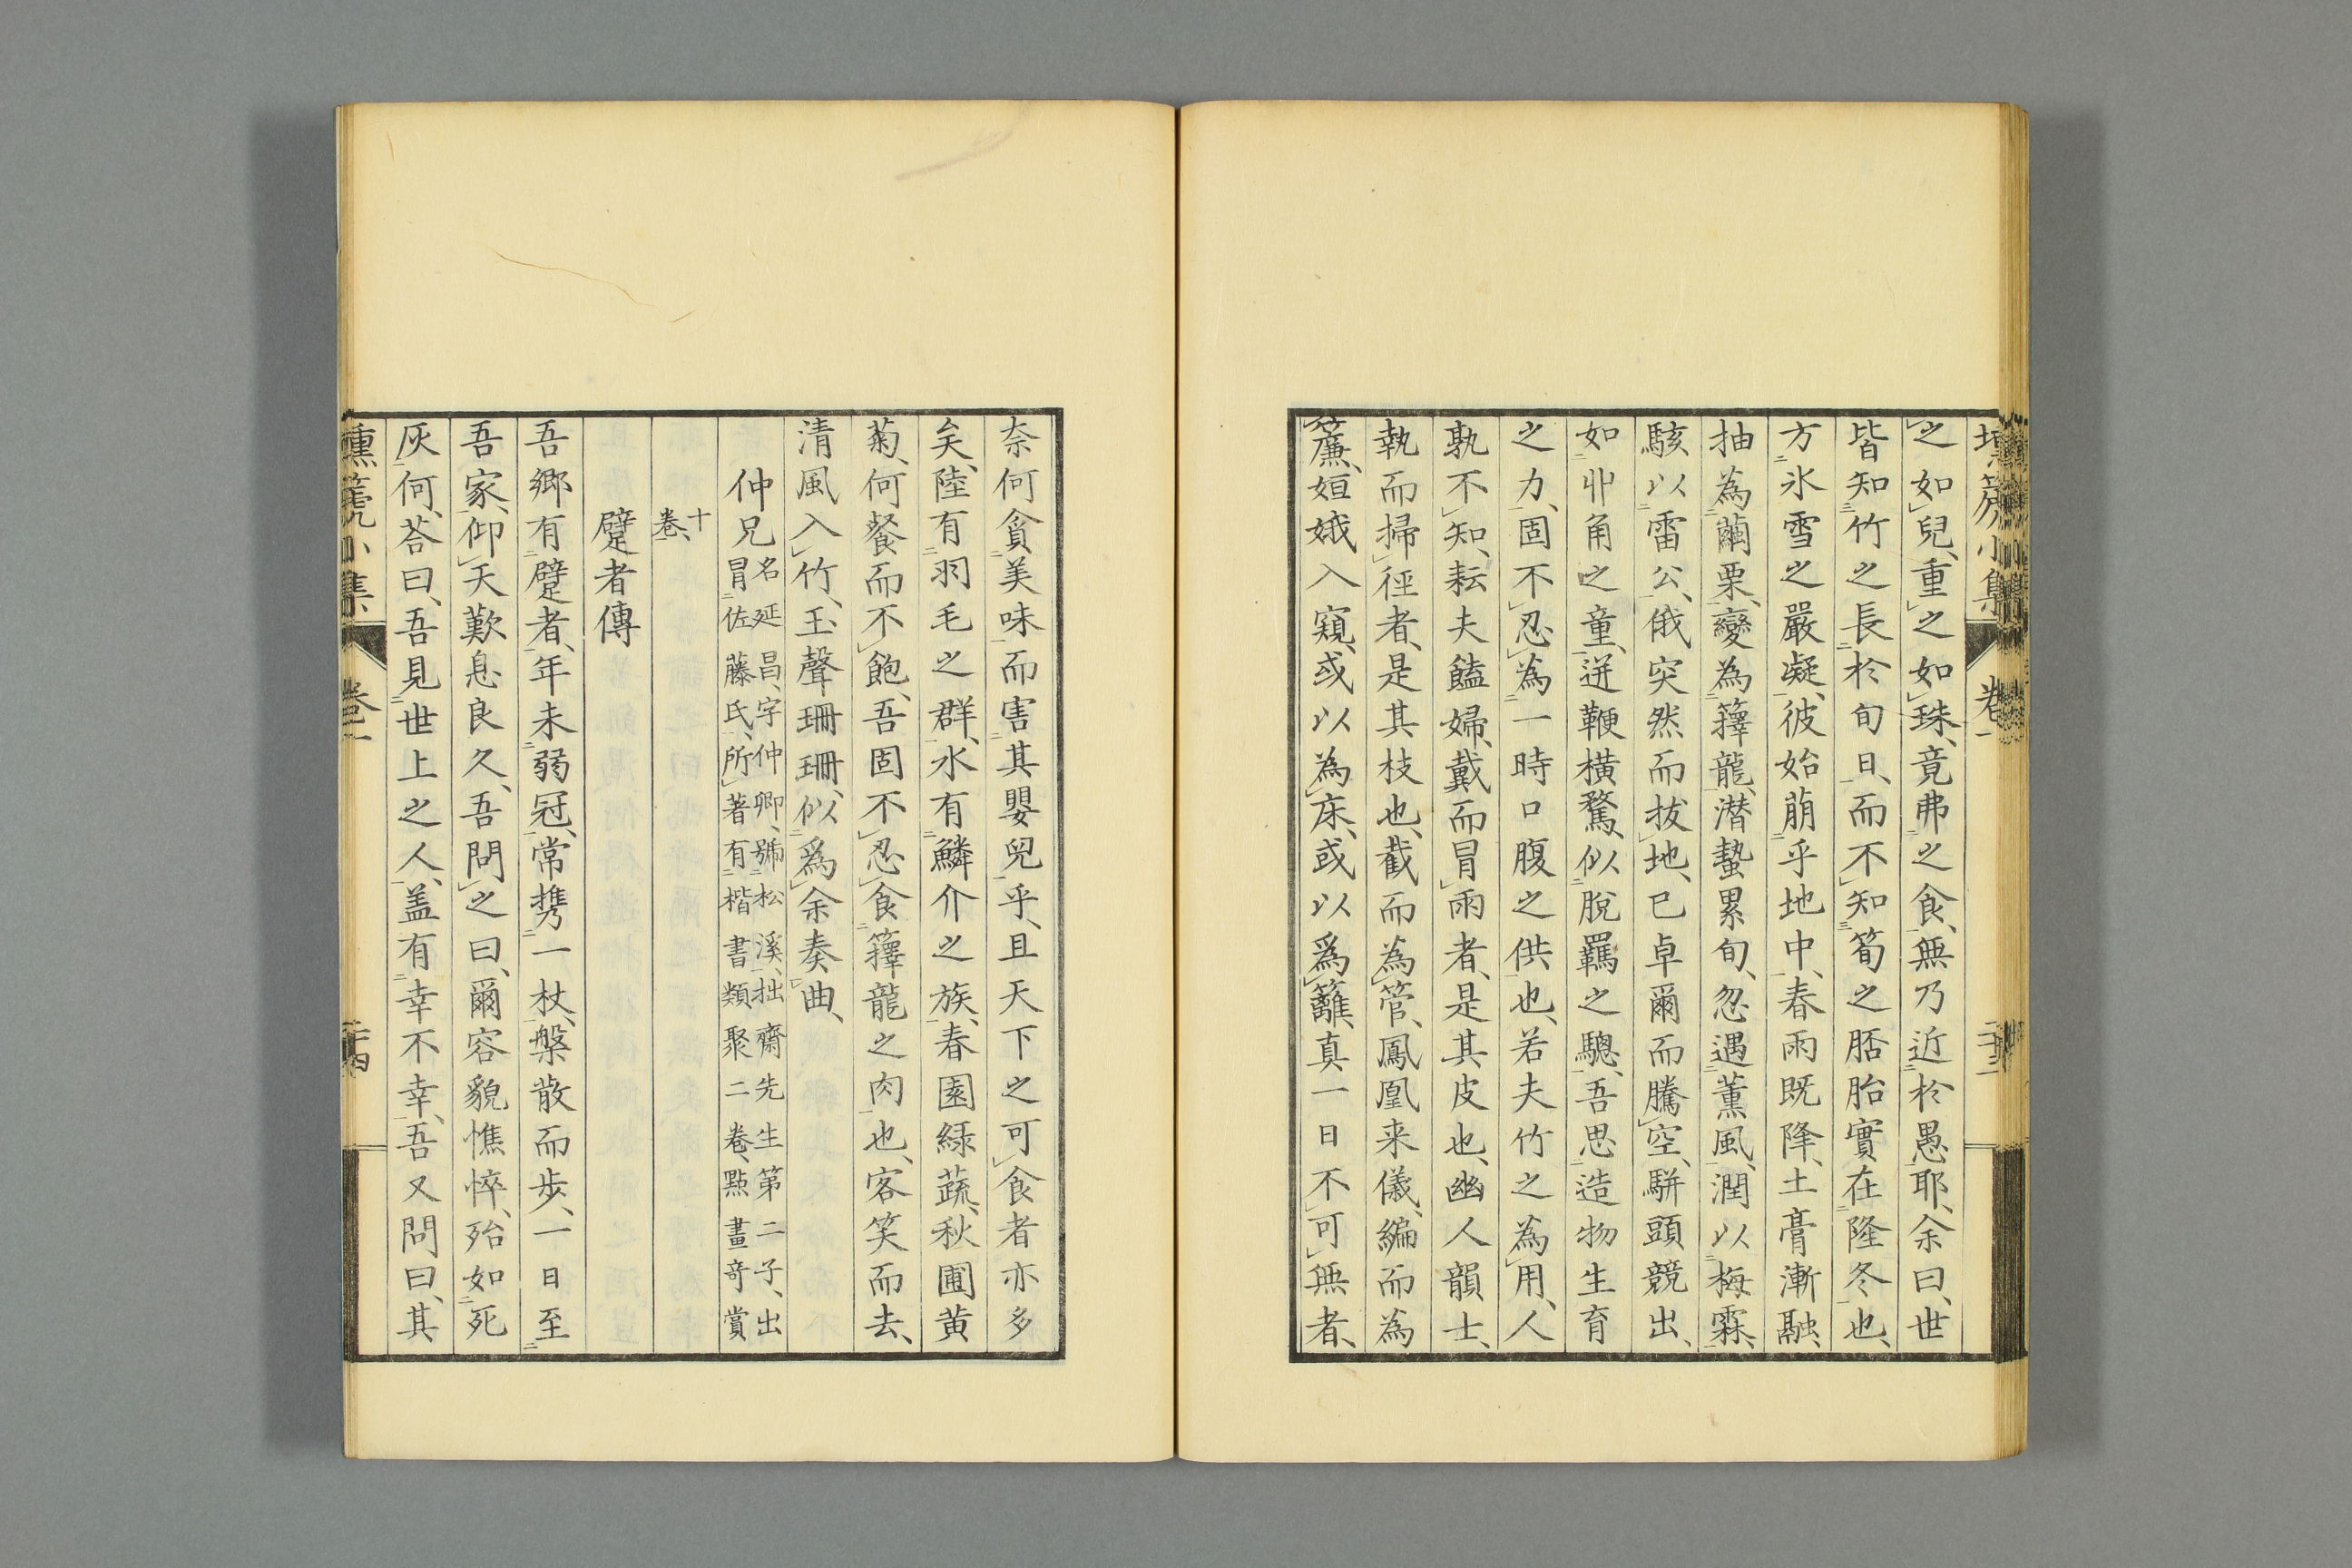 之如兒、重之如珠、竟弗之食、無乃近於愚耶、余曰、世
皆知竹之長於旬日、而不知筍之胚胎實在隆冬也、
方氷雪之嚴凝、彼始萠乎地中、春雨既降、土膏漸融、
抽為繭栗、變為籜龍、潜蟄累旬、忽遇薫風、潤以梅霖、
駭以雷公、俄突然而拔地、已卓爾而騰空、駢頭競出、
如丱角之童、迸鞭橫騖、似脫羈之驄、吾思造物生育
之力、固不忍為一時口腹之供也、若夫竹之為用、人
孰不知、耘夫饁婦、戴而冒雨者、是其皮也、幽人韻士、
執而掃徑者、是其枝也、截而為管、鳳凰来儀、編而為
簾、姮娥入窺、或以為床、或以爲籬、真一日不可無者、
奈何貪美味而害其嬰兒乎、且天下之可食者亦多
矣、陸有羽毛之群、水有鱗介之族、春園緑蔬、秋圃黄
菊、何餐而不飽、吾固不忍食籜龍之肉也、客笑而去、
清風入竹、玉聲珊珊、似爲余奏曲、
仲兄 名延昌、字仲卿、號松溪、拙齋先生第二子、出
冒佐藤氏、所著有楷書類聚二卷、點畫奇賞
十
卷、
躄者傳
吾鄉有躄者、年未弱冠、常携一杖、槃散而歩、一日至
吾家、仰天歎息良久、吾問之曰、爾容貌憔悴、殆如死
灰何、荅曰、吾見世上之人、盖有幸不幸、吾又問曰、其
小集 卷一